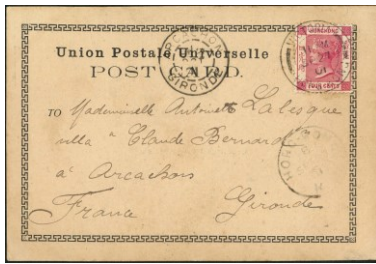 Union Postale Universelle
POST CARD.
HONG KONG
FOUR CENTS
GIRONDE
TO Mademoiselle Antoinette Lalesque
villa à Claude Bernard
à Arcachon
France Gironde